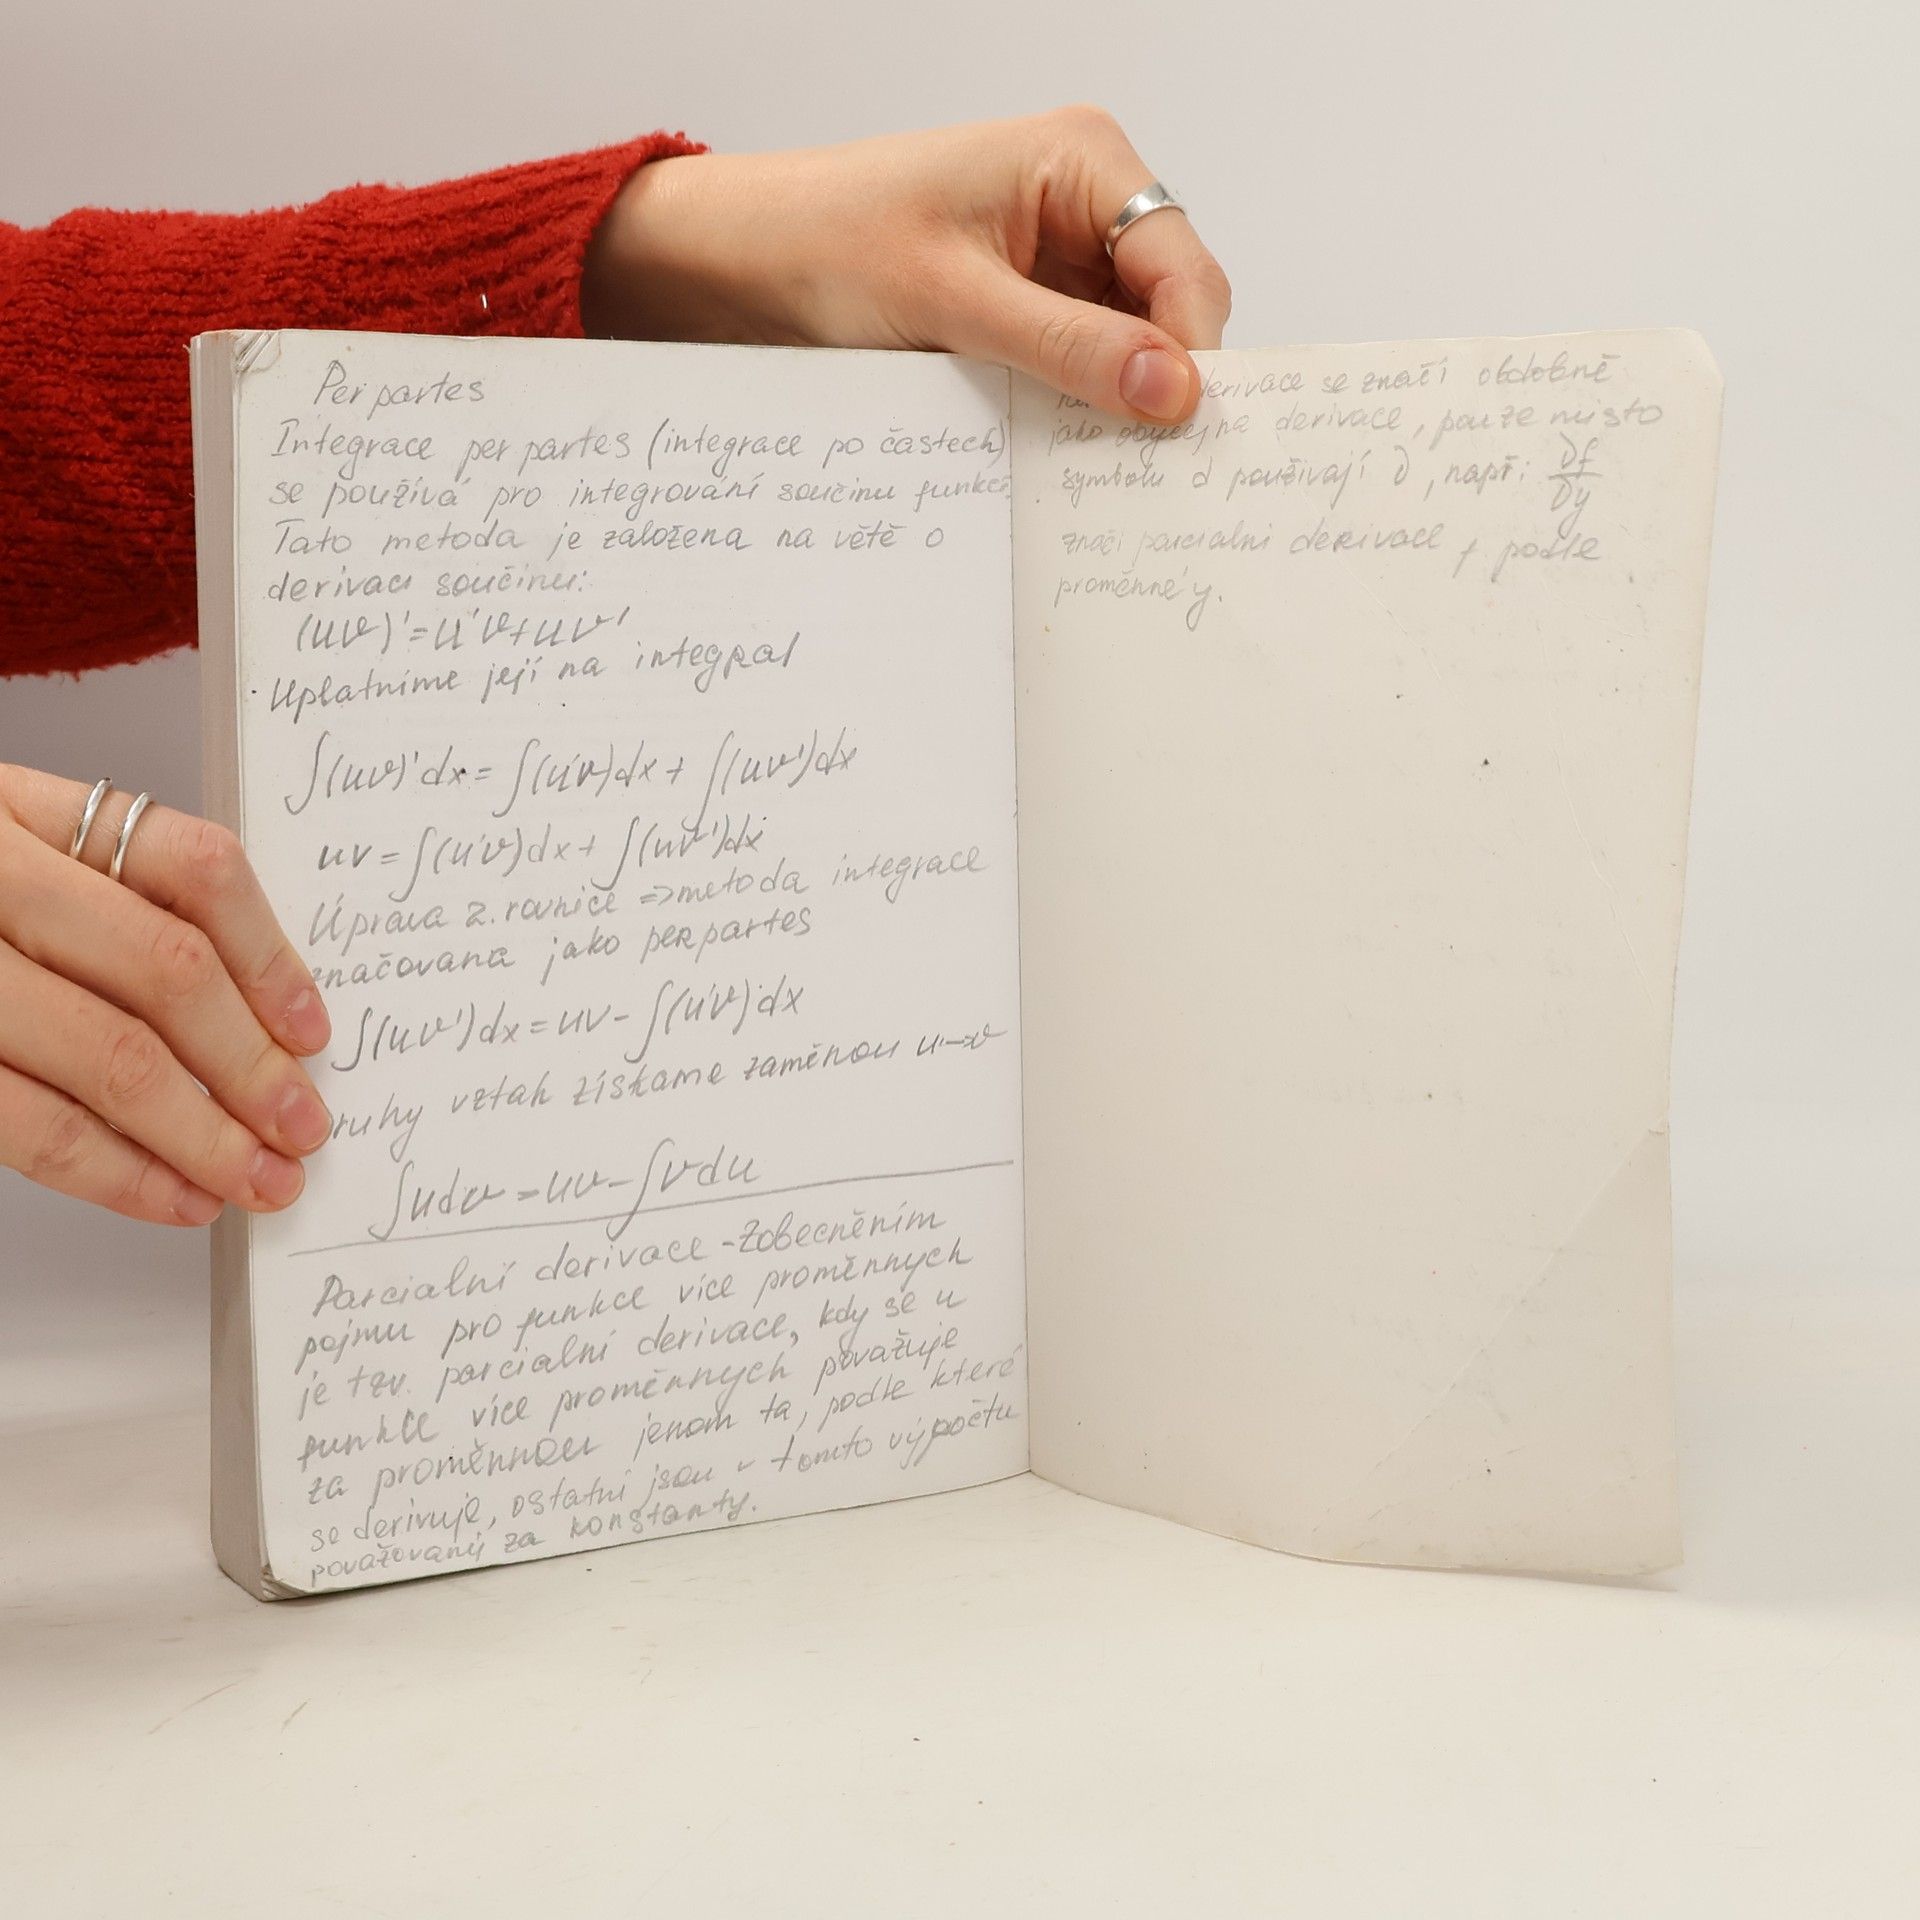 Per partes
Integrace per partes (integrace po častech)
se používá pro integrování součinu funkcí.
Tato metoda je založena na větě o
derivaci součinu:
(uv)'=u'v+uv'
Uplatníme její na integral
∫(uv)'dx=∫(u'v)dx+∫(uv')dx
uv=∫(u'v)dx+∫(uv')dx
Úprava 2. rovnice =>metoda integrace
značovana jako perpartes
∫(uv')dx=uv-∫(u'v)dx
ruhy vztah získame zaměnou u->v
∫udv=uv-∫vdu
Parcialní derivace - Zobecněním
pojmu pro funkce více proměnnych
je tzv. parcialní derivace, kdy se u
funkce více proměnnych považuje
za proměnnou jenom ta, podle které
se derivuje, ostatní jsou v tomto výpočtu
považovaný za konstanty.
derivace se značí obdobně
jako obyčejna derivace, pouze misto
symbolu d použivají ∂, např: ∂f/∂y
značí parcialni derivace f podle
proměnné y.